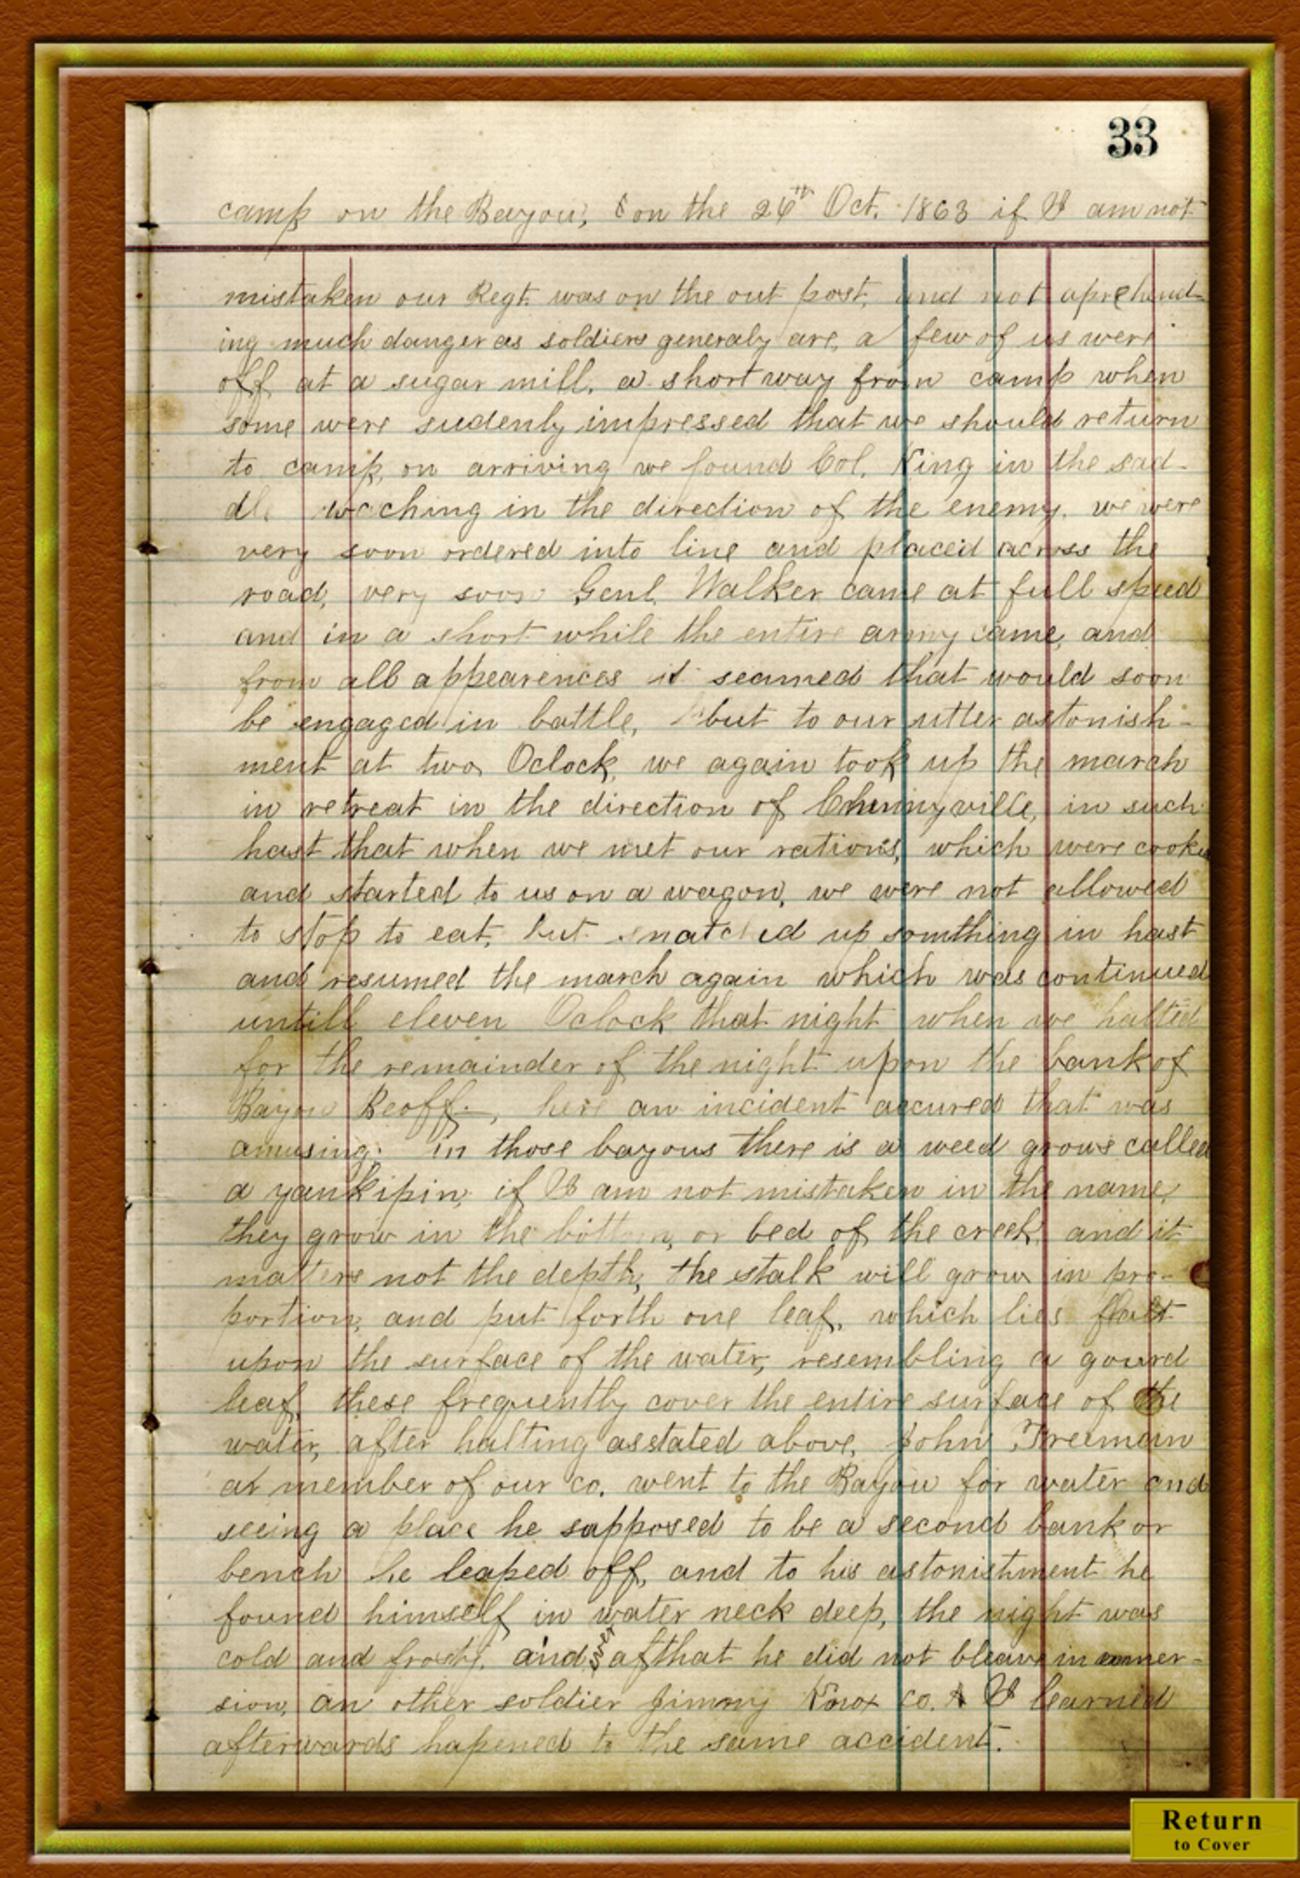 33
camp on the Bayou, & on the 26th Oct. 1863 if I am not
mistaken our Regt. was on the out post, and not aprehend-
ing much danger as soldiers generaly are, a few of us were
off at a sugar mill, a short way from camp when
some were sudenly impressed that we should return
to camp, on arriving we found Col. King in the sad-
dle waching in the direction of the enemy. we were
very soon ordered into line and placed across the
road, very soon Genl. Walker came at full speed
and in a short while the entire army came, and
from all appearences it seamed that would soon
be engaged in battle, but to our utter astonish-
ment at two Oclock, we again took up the march
in retreat in the direction of in such
hast that when we met our rations, which were
and started to us on a wagon, we were not allowed
to stop to eat, but snatched up somthing in hast
and resumed the march again which was continued
untill eleven Oclock that night when we halted
for the remainder of the night upon the bank of
Bayou Beoff, here an incident accured that was
amusing. in those bayous there is a weed grows called
a yankipin, if I am not mistaken in the name,
they grow in the bottom, or bed of the creek, and it
matters not the depth, the stalk will grow in pro-
portion, and put forth one leaf, which lies flatt
upon the surface of the water, resembling a gourd
leaf, these frequently cover the entire surface of the
water, after halting as stated above, John Freeman
a member of our co. went to the Bayou for water and
seeing a place he supposed to be a second bank or
bench he leaped off, and to his astonistment he
found himself in water neck deep, the night was
cold and frosty. and ever af that he did not bleave in emer-
sion, an other soldier Jimmy Knox co. A I learned
afterwards hapened to the same accident.
Return
to Cover